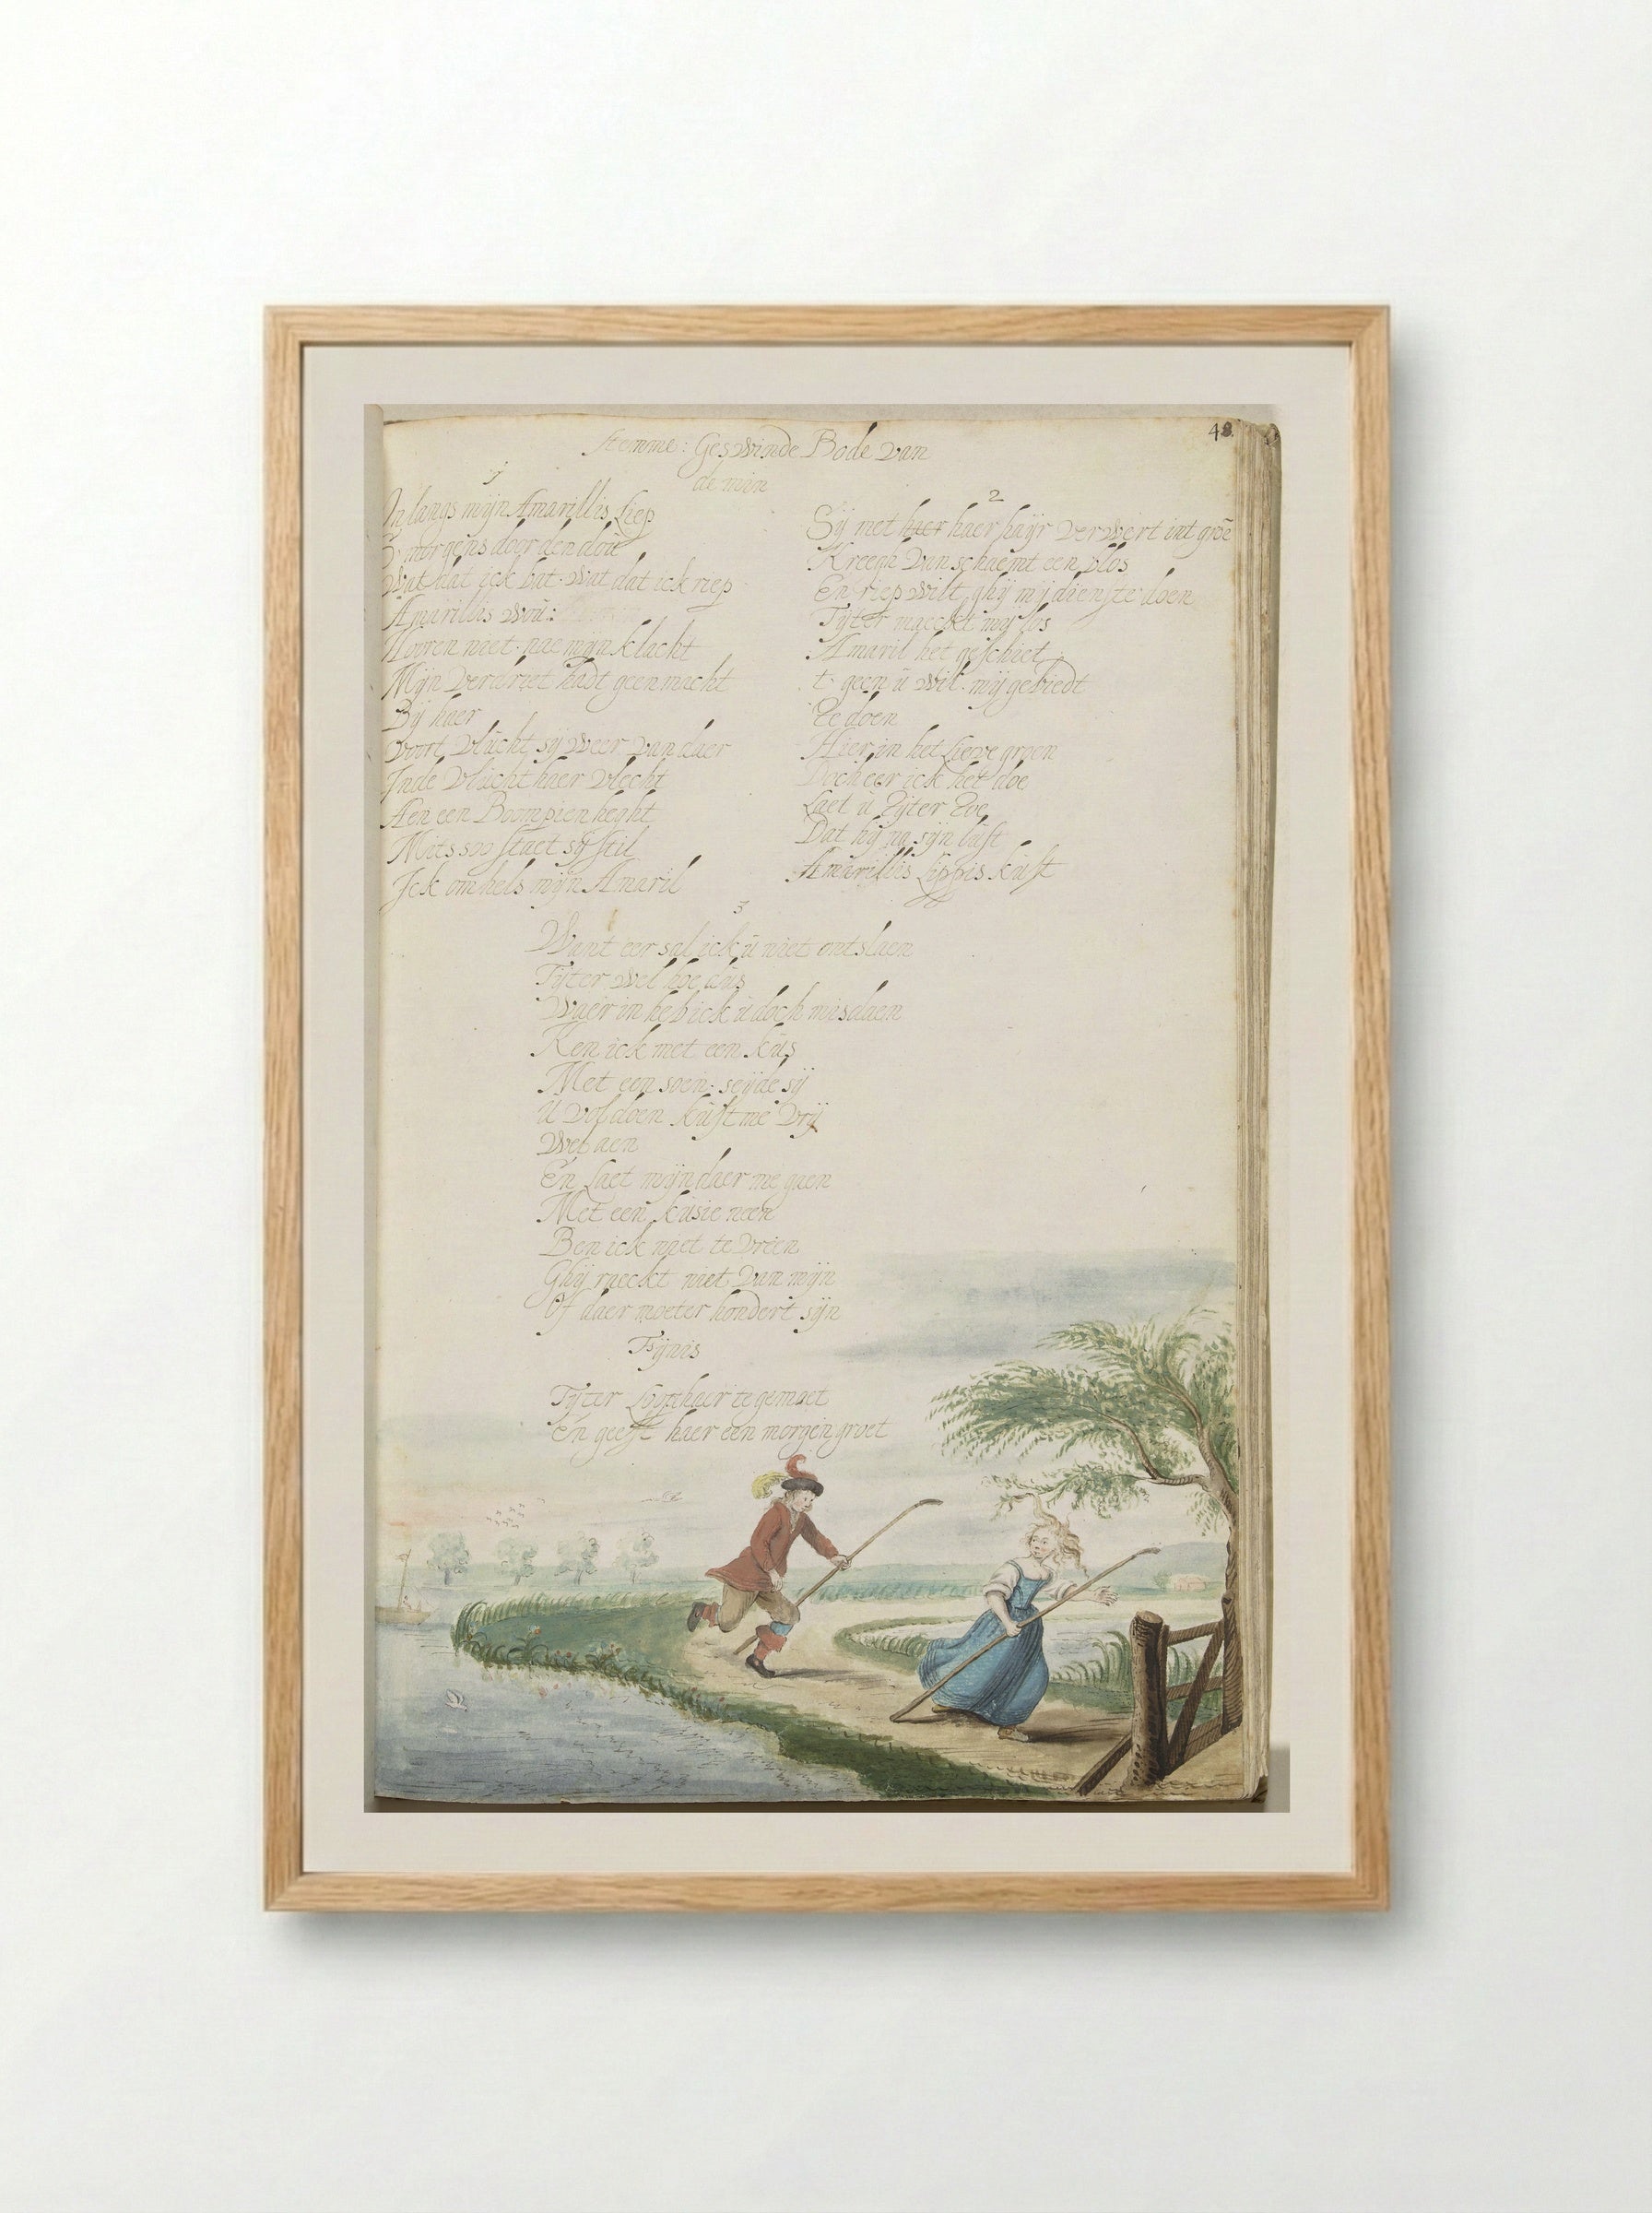 48.
Stemme: Geswinde Bode van
de min
1
On langs mijn Amarillis Liep
S'morgens door den dou
Wat dat ick bat. wat dat ick riep
Amarillis wou:
Hooren niet. nae mijn klacht
Mijn verdriet hadt geen macht
Bij haer
voort vlucht sij weer van daer
Inde vlucht haer vlecht
Aen een Boompien heght
Mits soo staet sij stil
Ick omhels mijn Amaril
2
Sij met haer haer hayr verwert int groe
Kreegh van schaemt een blos
En riep wilt ghij mij dienste doen
Tyter maeckt mij los
Amaril het geschiet
t. geen u wil. mij gebiedt
Te doen
Hier in het Lieve groen
Doch eer ick het doe
Laet u Tyter Toe
Dat hij na sijn lust
Amarillis Lippis kust
3
Want eer sal ick u niet ontslaen
Tyter wel hoe dus
Waer in heb ick u doch misdaen
Ken ick met een kus
Met een soen. seyde sij
U voldoen kust me vrij
Wel aen
En Laet mijn daer me gaen
Met een kusie neen
Ben ick niet te vreen
Ghij raeckt niet van mijn
Of daer moeter hondert sijn
Fynis
Tyter Loopt haer te gemoet
En geeft haer een morgen groet